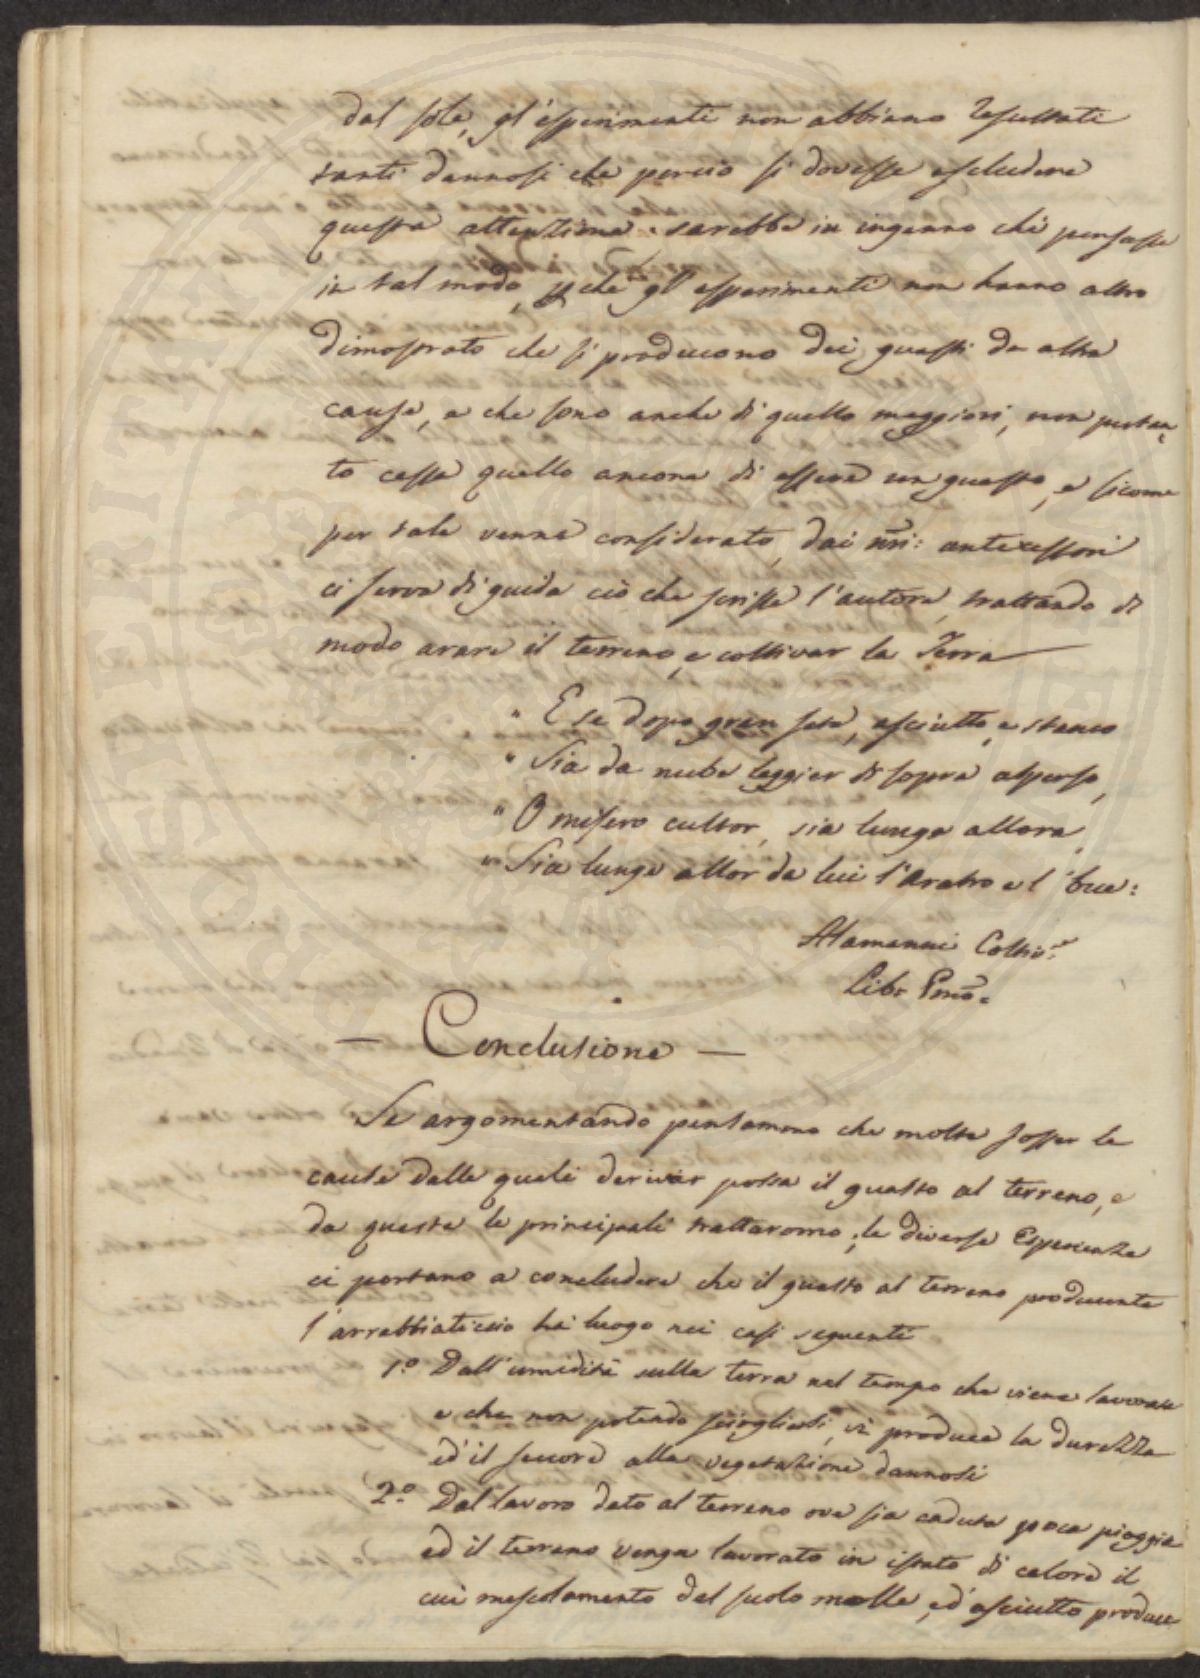 dal sole, gl'esperimenti non abbiano resultati
tanti dannosi che perciò si dovesse escludere
questa attenzione. sarebbe in inganno chi pensasse
in tal modo, che gl'esperimenti non hanno altro
dimostrato che si producono dei guasti da altra
causa, e che sono anche di quello maggiori, non pertan,,
to cessa quello ancora di essere un guasto, e sicome
per tale venne considerato, dai nri: antecessori
ci serva di guida ciò che scrisse l'autore, trattando di
modo arare il terreno, e coltivar la Terra
" E se dopo gran sete, asciutto, e stanco
" Sia da nube leggier di sopra asperso,
" O misero cultor, sia lunge allora,
" Sia lunge allor da lui l'Aratro e l'bue:
Alamanni Coltiv.e
Libr Pmo.
— Conclusione —
Se argomentando pensammo che molte fosser le
cause dalle quali derivar possa il guasto al terreno, e
da queste le principali trattaromo; le diverse Esperienze
ci portano a concludere che il guasto al terreno producente
l'arrabbiaticcio ha luogo nei casi seguenti
1.o Dall'umidità sulla terra nel tempo che viene lavorata
e che non potendo sciogliersi, vi produce la durezza
ed'il seccore alla vegetazione dannosi
2.o Dal lavoro dato al terreno ove sia caduta poca pioggia
ed il terreno venga lavorato in istato di calore il
cui mescolamento del suolo molle, ed'asciutto produce
PROSPERITATI